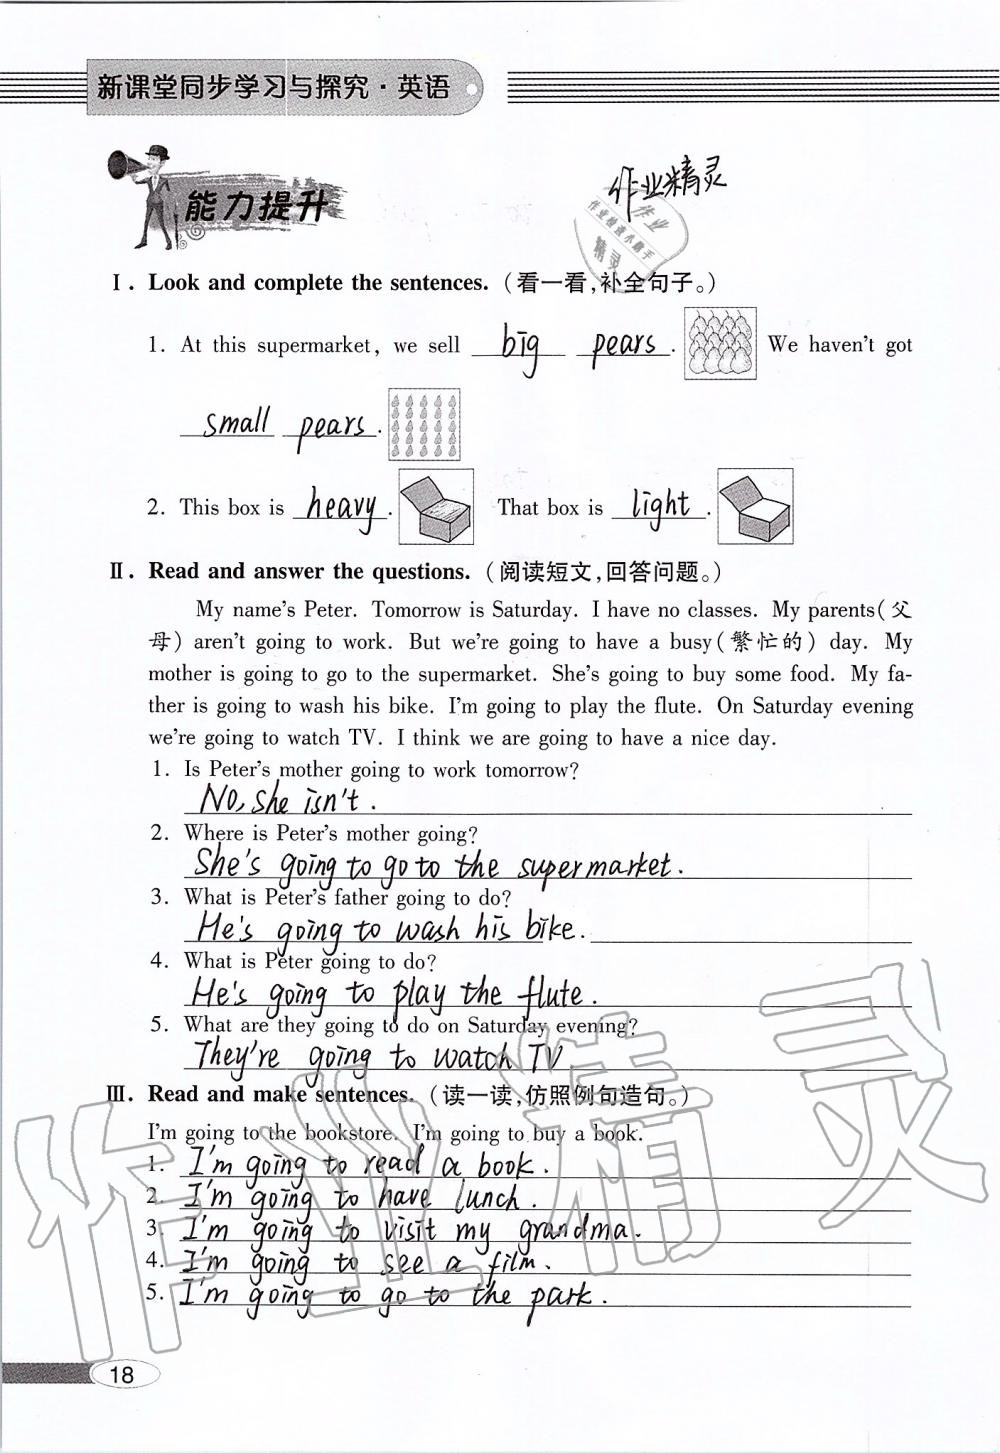 新课堂同步学习与探究·英语
能力提升
作业精灵
作业
作业检查小助手
精灵
Ⅰ. Look and complete the sentences. (看一看,补全句子。)
1. At this supermarket, we sell big pears. We haven't got
small pears.
2. This box is heavy. That box is light.
Ⅱ. Read and answer the questions. (阅读短文,回答问题。)
My name's Peter. Tomorrow is Saturday. I have no classes. My parents(父
母) aren't going to work. But we're going to have a busy(繁忙的) day. My
mother is going to go to the supermarket. She's going to buy some food. My fa-
ther is going to wash his bike. I'm going to play the flute. On Saturday evening
we're going to watch TV. I think we are going to have a nice day.
1. Is Peter's mother going to work tomorrow?
No, she isn't.
2. Where is Peter's mother going?
She's going to go to the supermarket.
3. What is Peter's father going to do?
He's going to wash his bike.
4. What is Peter going to do?
He's going to play the flute.
5. What are they going to do on Saturday evening?
They're going to watch TV
Ⅲ. Read and make sentences. (读一读,仿照例句造句。)
I'm going to the bookstore. I'm going to buy a book.
1. I'm going to read a book.
2. I'm going to have lunch.
3. I'm going to visit my grandma.
4. I'm going to see a film.
5. I'm going to go to the park.
作业精灵
18